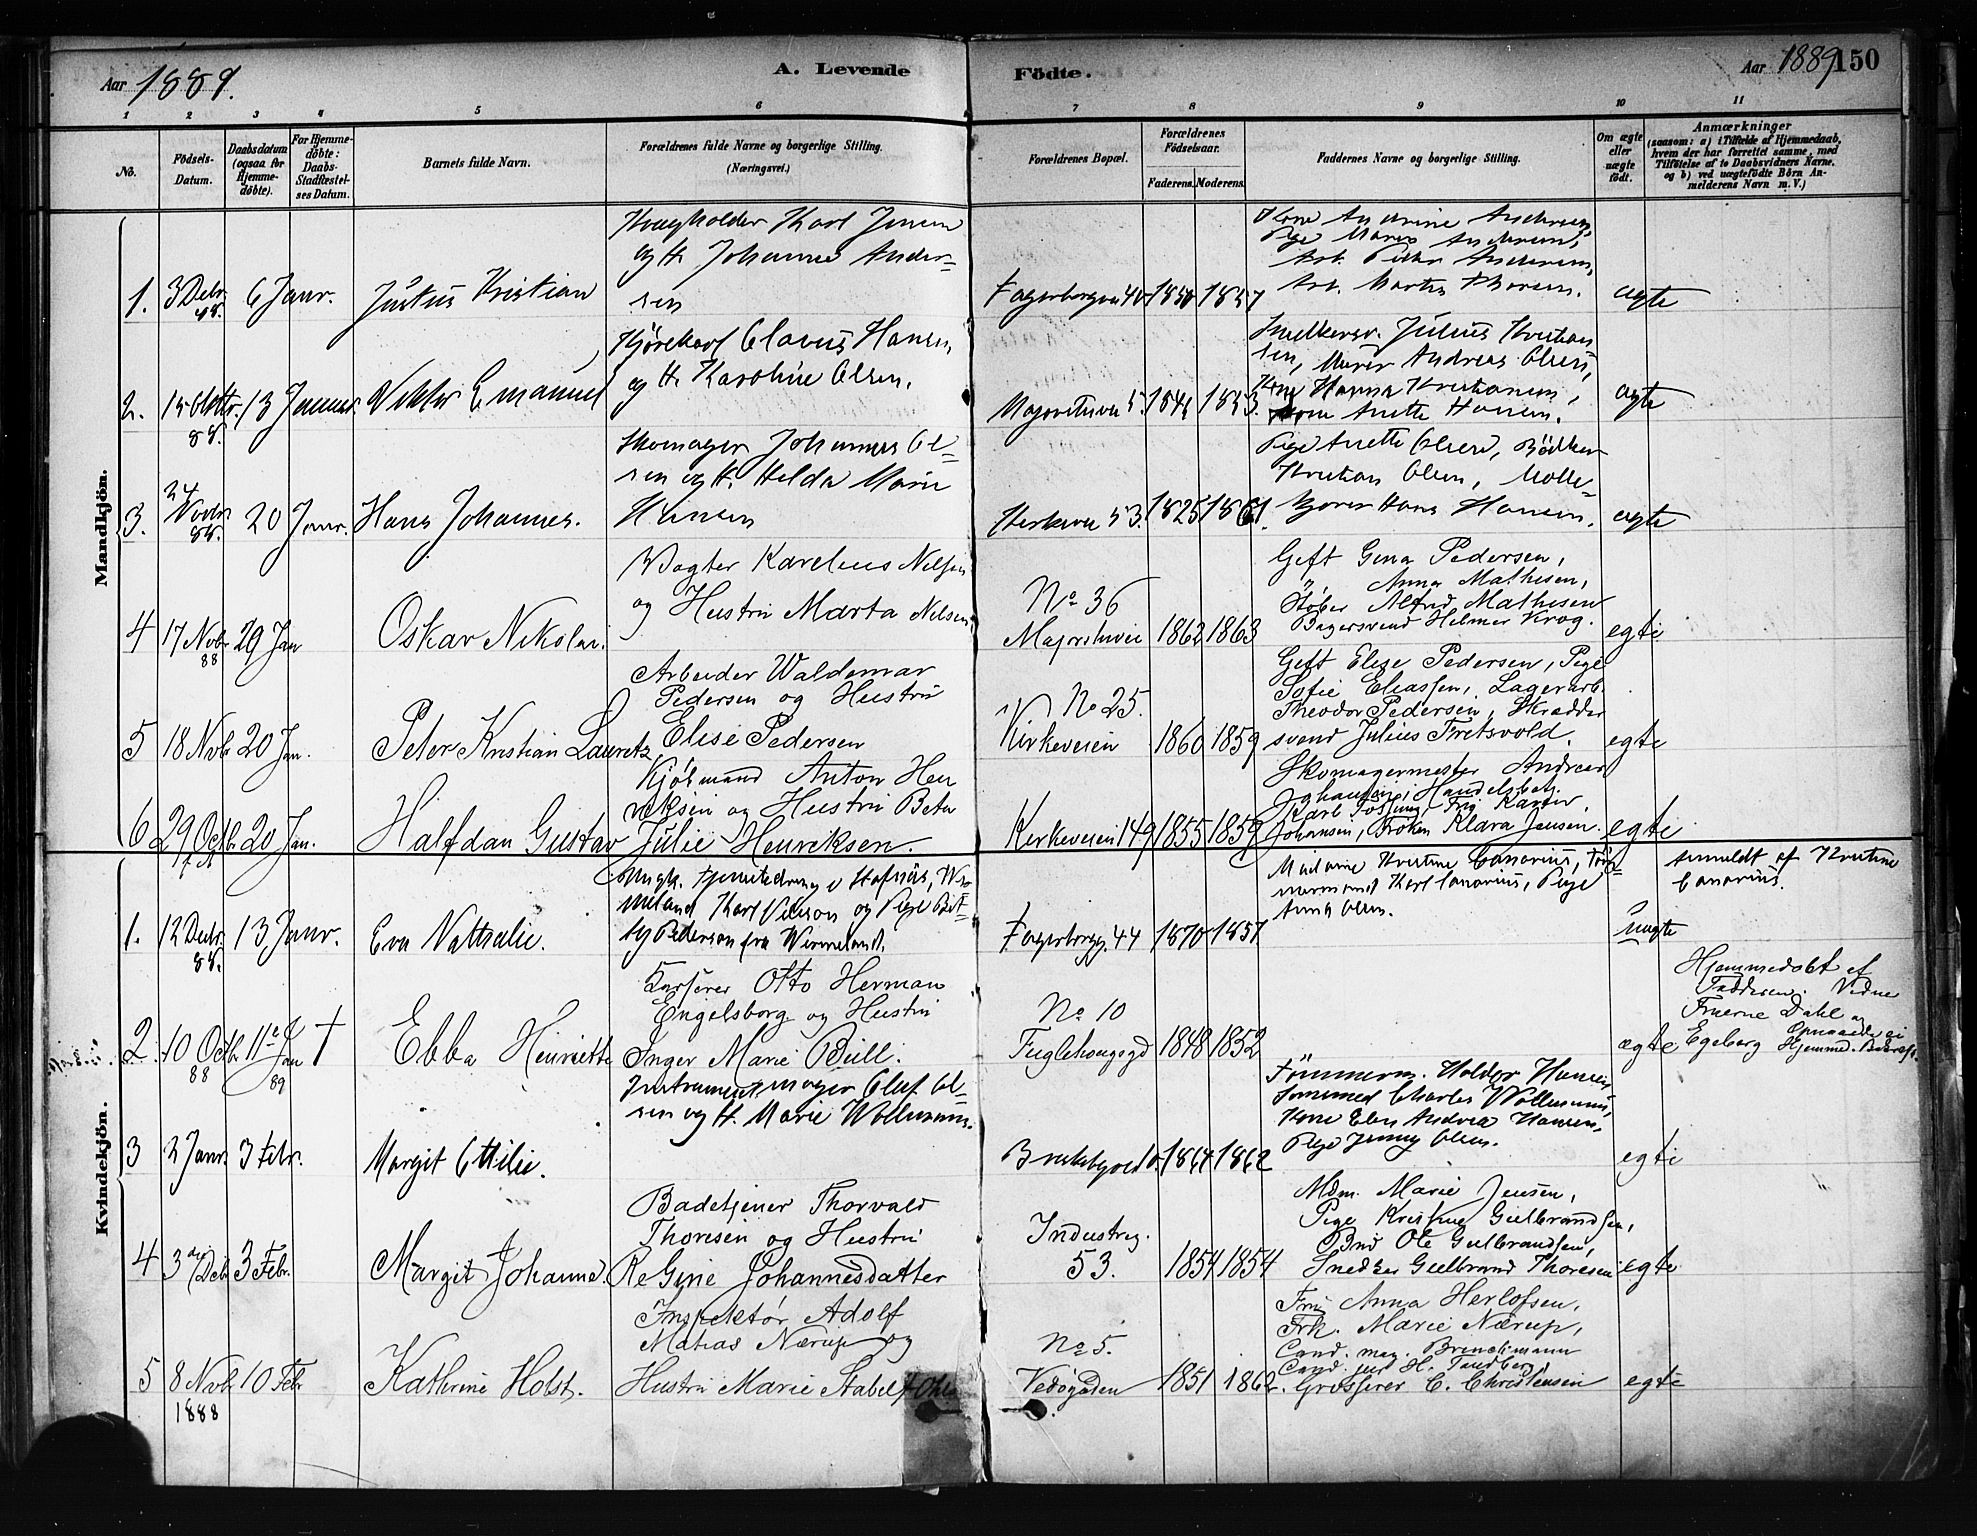 Aar 1889.
A. Levende
Fødte.
Aar 1889 150
1 2 3 4 5 6 7 8 9 10 11
No.
Fødsels-Datum.
Daabsdatum (ogsaa for Hjemme-døbte).
For Hjemme-døbte: Daabs-Stadfæstel-ses Datum.
Barnets fulde Navn.
Forældrenes fulde Navne og borgerlige Stilling. (Næringsvei.)
Forældrenes Bopæl.
Forældrenes Fødselsaar.
Faderens. Moderens.
Faddernes Navne og borgerlige Stilling.
Om ægte eller uægte født.
Anmærkninger
(saasom: a) i Tilfælde af Hjemmedaab, hvem der har forrettet samme, med Tilføielse af to Daabsvidners Navne, og b) ved uægtefødte Børn An-melderens Navn m. V.)
Mandkjön.
1. 3 Debr. 88. 6 Janr. Justus Kristian
Karl Jensen
og H. Johanne Ander=
sen
1857
Kone Andrine Andersen,
Pige Maren Andersen,
Arb. Peder Andersen,
Arb. Martin Thoresen.
ægte
2. 15 Oktbr. 88. 13 Januar. Viktor Emanuel
Kjørekarl Olavus Hansen,
og H. Karoline Olsen.
1853.
Snedkersv. Julius Kristian
sen, Murer Andreas Olsen,
Kone Hanna Kristiansen,
Kone Anette Hansen.
ægte
3. 24 Novbr. 88. 20 Janr. Hans Johannes.
Skomager Johannes Ol=
sen og H. Helda Marie
Hansen
53. 1825 1861.
Pige Anette Olsen, Bødker
Kristian Olsen, Mølle=
Hans Hansen.
ægte
4 17 Novb. 88 29 Jan Oskar Nikolai.
Vogter Karelius Nilsen
og Hustru Marta Nilsen
No 36
Majorstuvei 1862 1863
Gift Gina Pedersen,
" Anna Mathisen,
Støber Alfred Mathisen
Bagersvend Helmer Krog.
egte
5 18 Novb. 20 Jan. Peter Kristian Lauretz
Arbeider Waldemar
Pedersen og Hustru
Elise Pedersen
No 25.
Kirkeveien 1860 1859
Gift Elise Pedersen, Pige
Sofie Eliassen, Lagerarb.
Theodor Pedersen, Skrædder
svend Julius Fretsvold.
egte
6 29 Octb. 20 Jan. Halfdan Gustav
Kjøbmand Anton Hen
riksen og Hustru Beta
Julie Henriksen.
Kirkeveien 149 1855 1859
Skomagermester Andreas
Johansen, Handelsbetj.
Karl Fossung, Fru Karen
Johansen, Frøken Klara Jensen.
egte
Kvindekjön.
1. 12 Debr. 88. 13 Janr. Eva Nathalie.
Karl Nilsson og Pige Bet=
ty Pederson fra Wermeland.
44 1870 1857
Madame Kristine Canarius, Tøm=
mermand Karl Canarius, Pige
Anna Olsen.
uægte
Anmeldt af Kristine
Canarius.
2. 10 Octb. 88 11te Jan 89 † Ebba Henriette
Kasserer Otto Herman
Engelsborg og Hustru
Inger Marie Bull.
No 10
Fuglehaugsgd 1848 1852
ægte
Hjemmedøbt af
Faderen. Vidne
Fruerne Dahl og
Egeberg
3 2 Janr. 3 Febr. Margit Ottilie.
Instrumentmager Oluf Ol=
sen og H. Marie Wollmann.
1864 1862
Tømmerm. Holder Hansen,
Charles Wollmann,
Kone Elen Andrea Hansen,
Pige Jenny Olsen.
egte
4 3die Deb. 3 Febr. Margit Johanne.
Badetjener Thorvald
Thoresen og Hustru
Regine Johannesdatter
Industrig.
53. 1854 1854
Mdm. Marie Jensen,
Pige Kristine Gulbrandsen,
Ole Gulbrandsen,
Snedker Gulbrand Thoresen
egte
5 8 Novb. 1888 10 Febr Kathrine Holst.
Inspektør Adolf
Matias Nærup og
Hustru Marie Stabell
No 5.
1851 1862.
Fru Anna Herlofsen,
Frk. Marie Nærup,
Cand. mag. Brinchmann
Cand. jur H. Tandberg,
Grosserer C. Christensen
egte